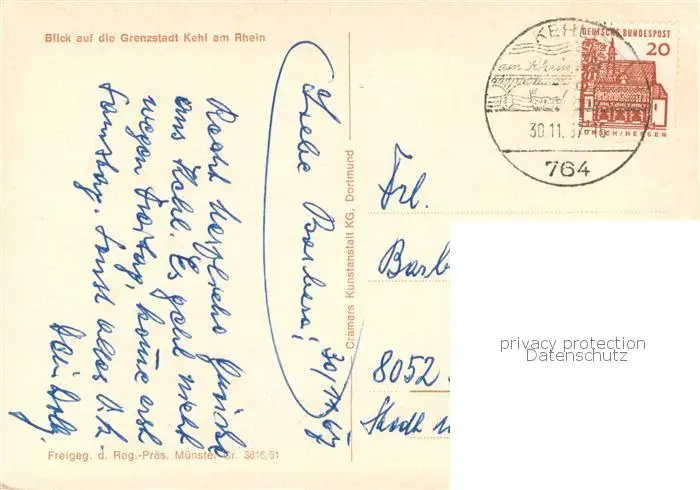 Blick auf die Grenzstadt Kehl am Rhein
Liebe Barbara!
30/11/67
Recht herzliche Grüße
aus Kehl. Es geht nicht
wegen Freitag, komme erst
Samstag. Sonst alles o.k.
Dein
Freigeg. d. Reg.-Präs. Münster Nr. 3816/61
Cramers Kunstanstalt KG, Dortmund
KEHL
am Rhein
30.11.67-16
764
DEUTSCHE BUNDESPOST
20
LORSCH/HESSEN
Frl.
Barb
8052
Stadt
privacy protection
Datenschutz